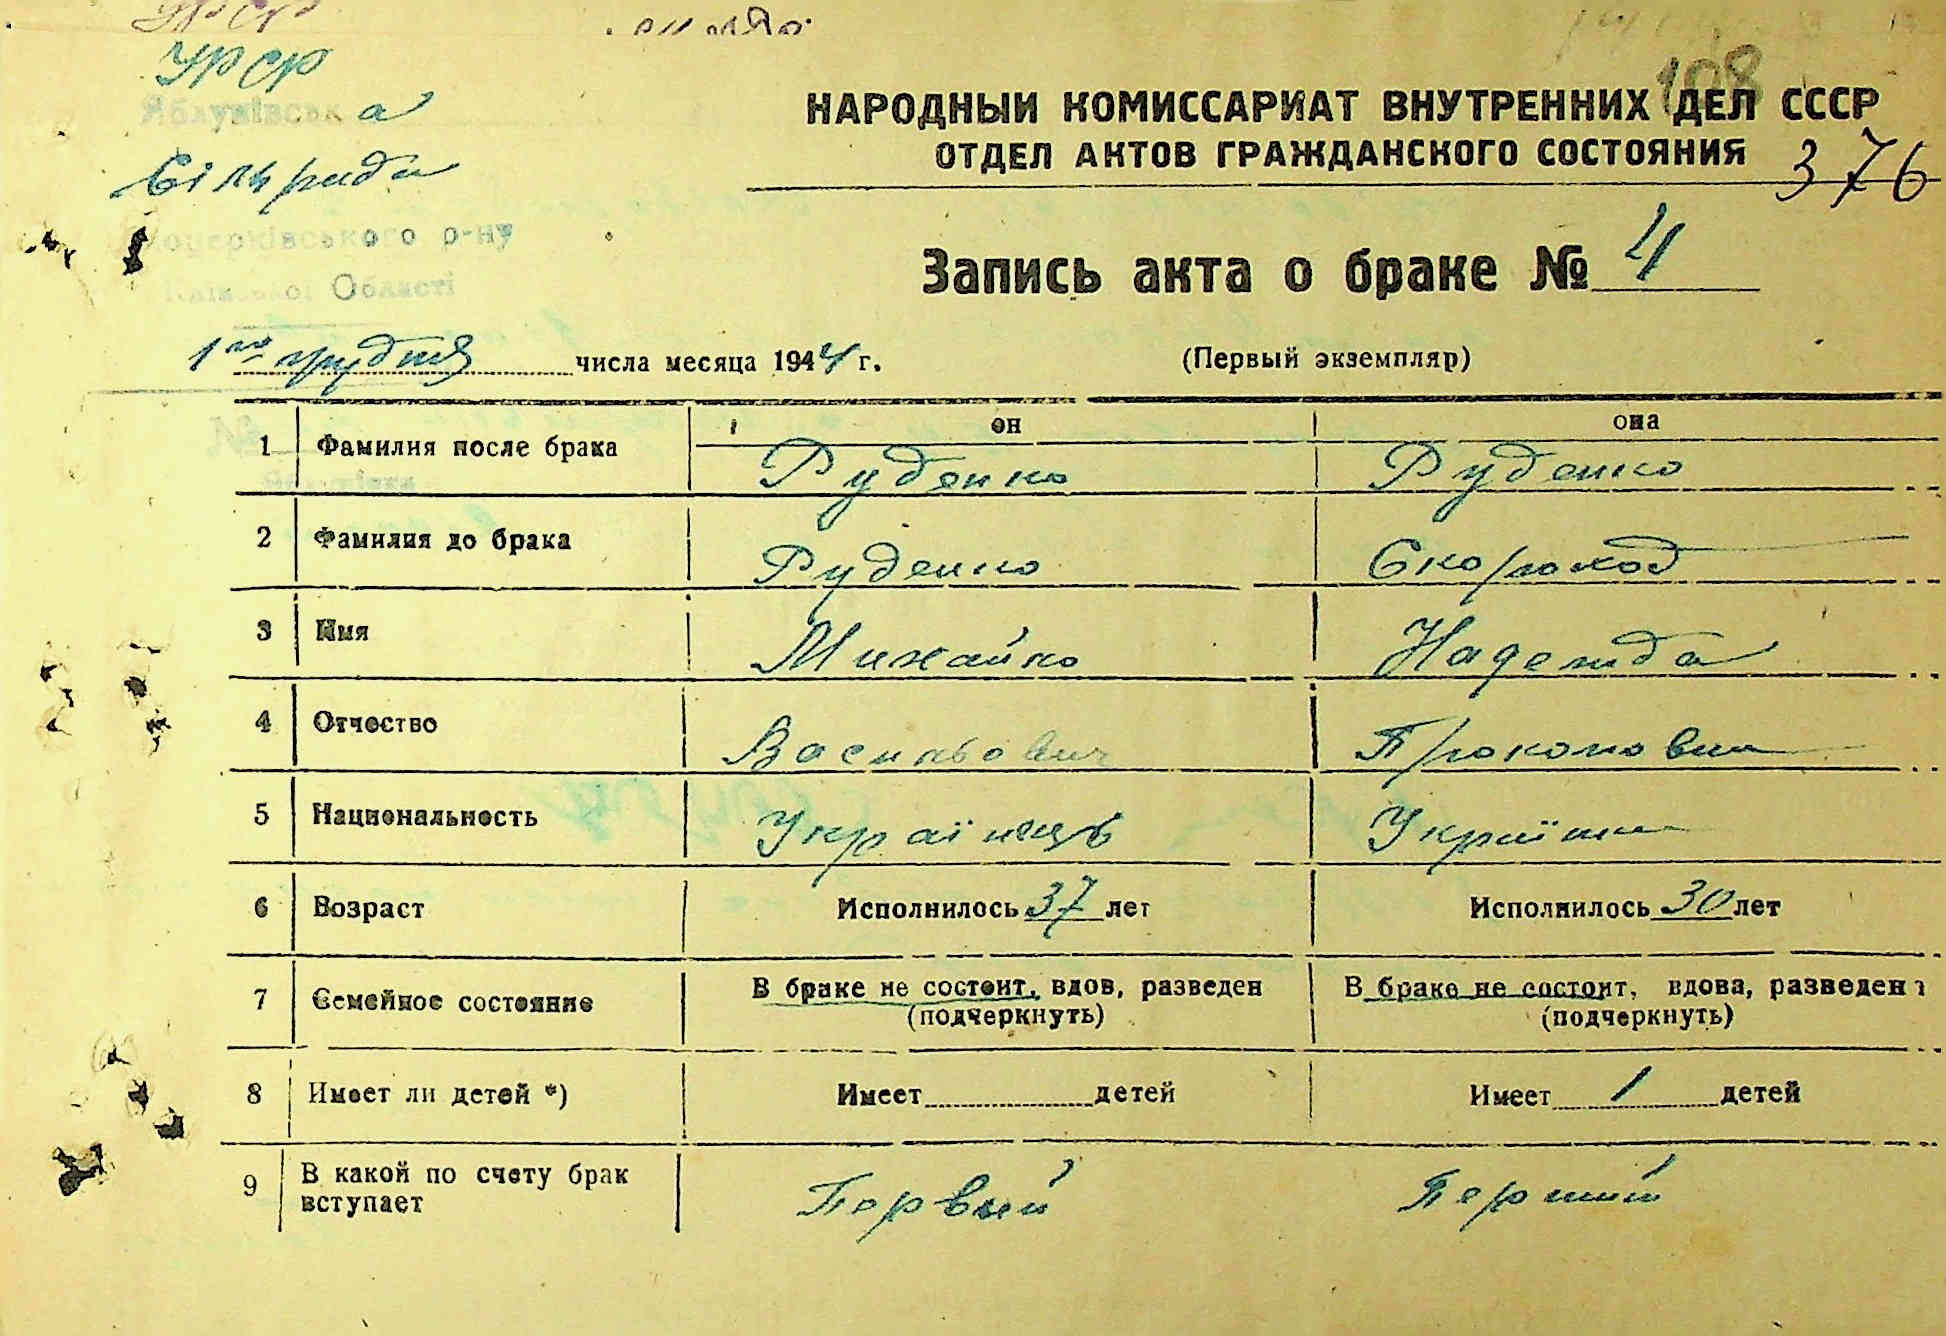 УРСР
УРСР
Яблунівська
Сільрада
р-ну
Області
108
НАРОДНЫЙ КОМИССАРИАТ ВНУТРЕННИХ ДЕЛ СССР
ОТДЕЛ АКТОВ ГРАЖДАНСКОГО СОСТОЯНИЯ 376
Запись акта о браке № 4
1го грудня числа месяца 1944 г. (Первый экземпляр)
он она
1 Фамилия после брака Руденко Руденко
2 Фамилия до брака Руденко Скороход
3 Имя Михайло Надежда
4 Отчество Васильович Прокоповна
5 Национальность Українець Українка
6 Возраст Исполнилось 37 лет Исполнилось 30 лет
7 Семейное состояние В браке не состоит, вдов, разведен В браке не состоит, вдова, разведена
(подчеркнуть) (подчеркнуть)
8 Имеет ли детей *) Имеет детей Имеет 1 детей
9 В какой по счету брак Первый Перший
вступает